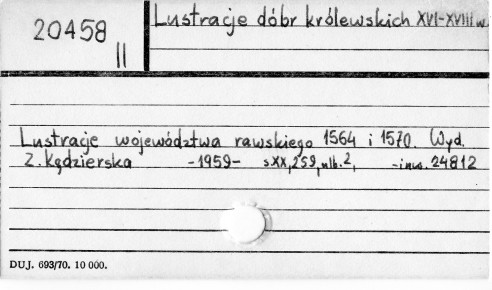 20458
II
Lustracje dóbr królewskich XVI-XVIII w.
Lustracje województwa rawskiego 1564 i 1570. Wyd.
Z. Kędzierska -1959- s XX, 259, nlb. 2, -inw. 24812
DUJ. 693/70. 10 000.